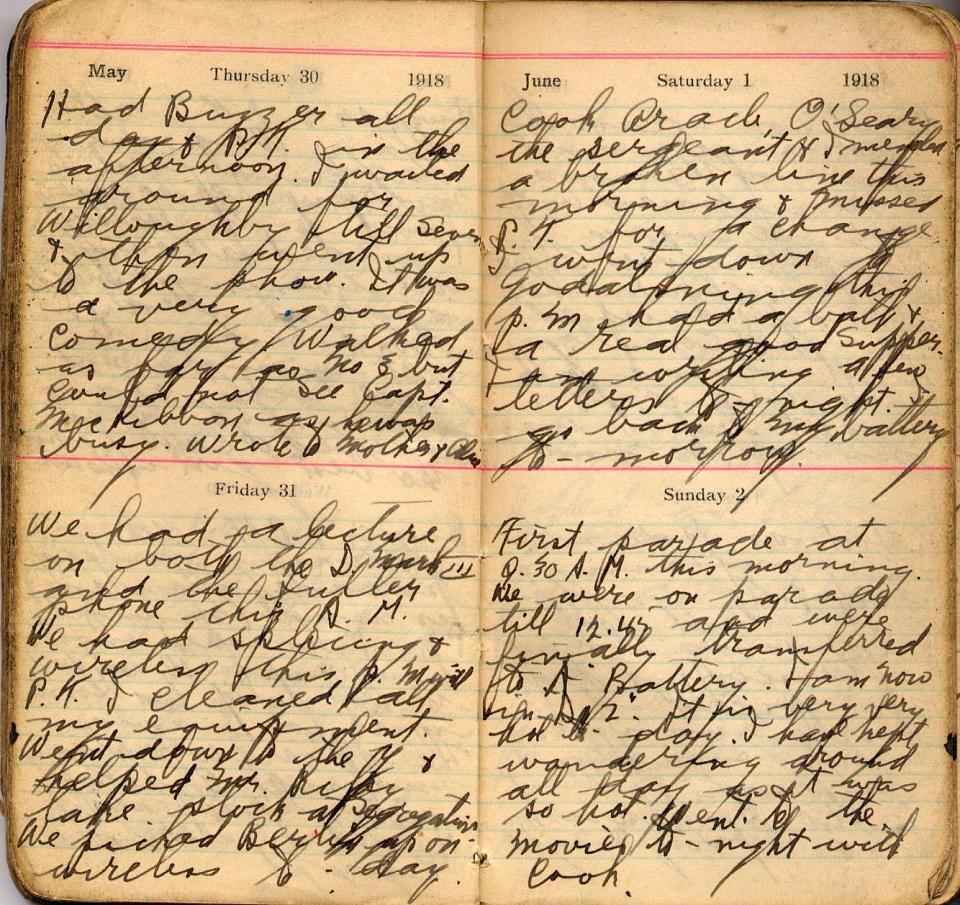 May Thursday 30 1918
Had Buzzer all
day & P.T. in the
afternoon. I waited
around for
Willoughby till seven
& then went up
to the show. It was
a very good
Comedy. Walked
as far as No 3 but
could not see Capt.
as he was
busy. Wrote to Mother &
Friday 31
We had a lecture
on both the D Mark III
and the Fuller
phone this A. M.
We had splicing &
wireless this P. M.
P. T. I cleaned all
my equipment.
Went down to the Y &
helped Mr.
take stock at Segregation
We picked Berlin up on
wireless to-day.
June Saturday 1 1918
Cook O'Leary
the sergeant & I mended
a broken line this
morning & missed
P. T. for a change
I went down to
Godalming this
p. m. had a bath &
a real good supper.
I am writing a few
letters to-night. I
go back to my battery
to-morrow.
Sunday 2
First parade at
8.30 A. M. this morning.
We were on parade
till 12.45 and were
finally transferred
to A Battery. I am now
in It is very very
hot to-day. I have kept
wandering around
all day as it was
so hot. Went to the
movies to-night with
Cook.